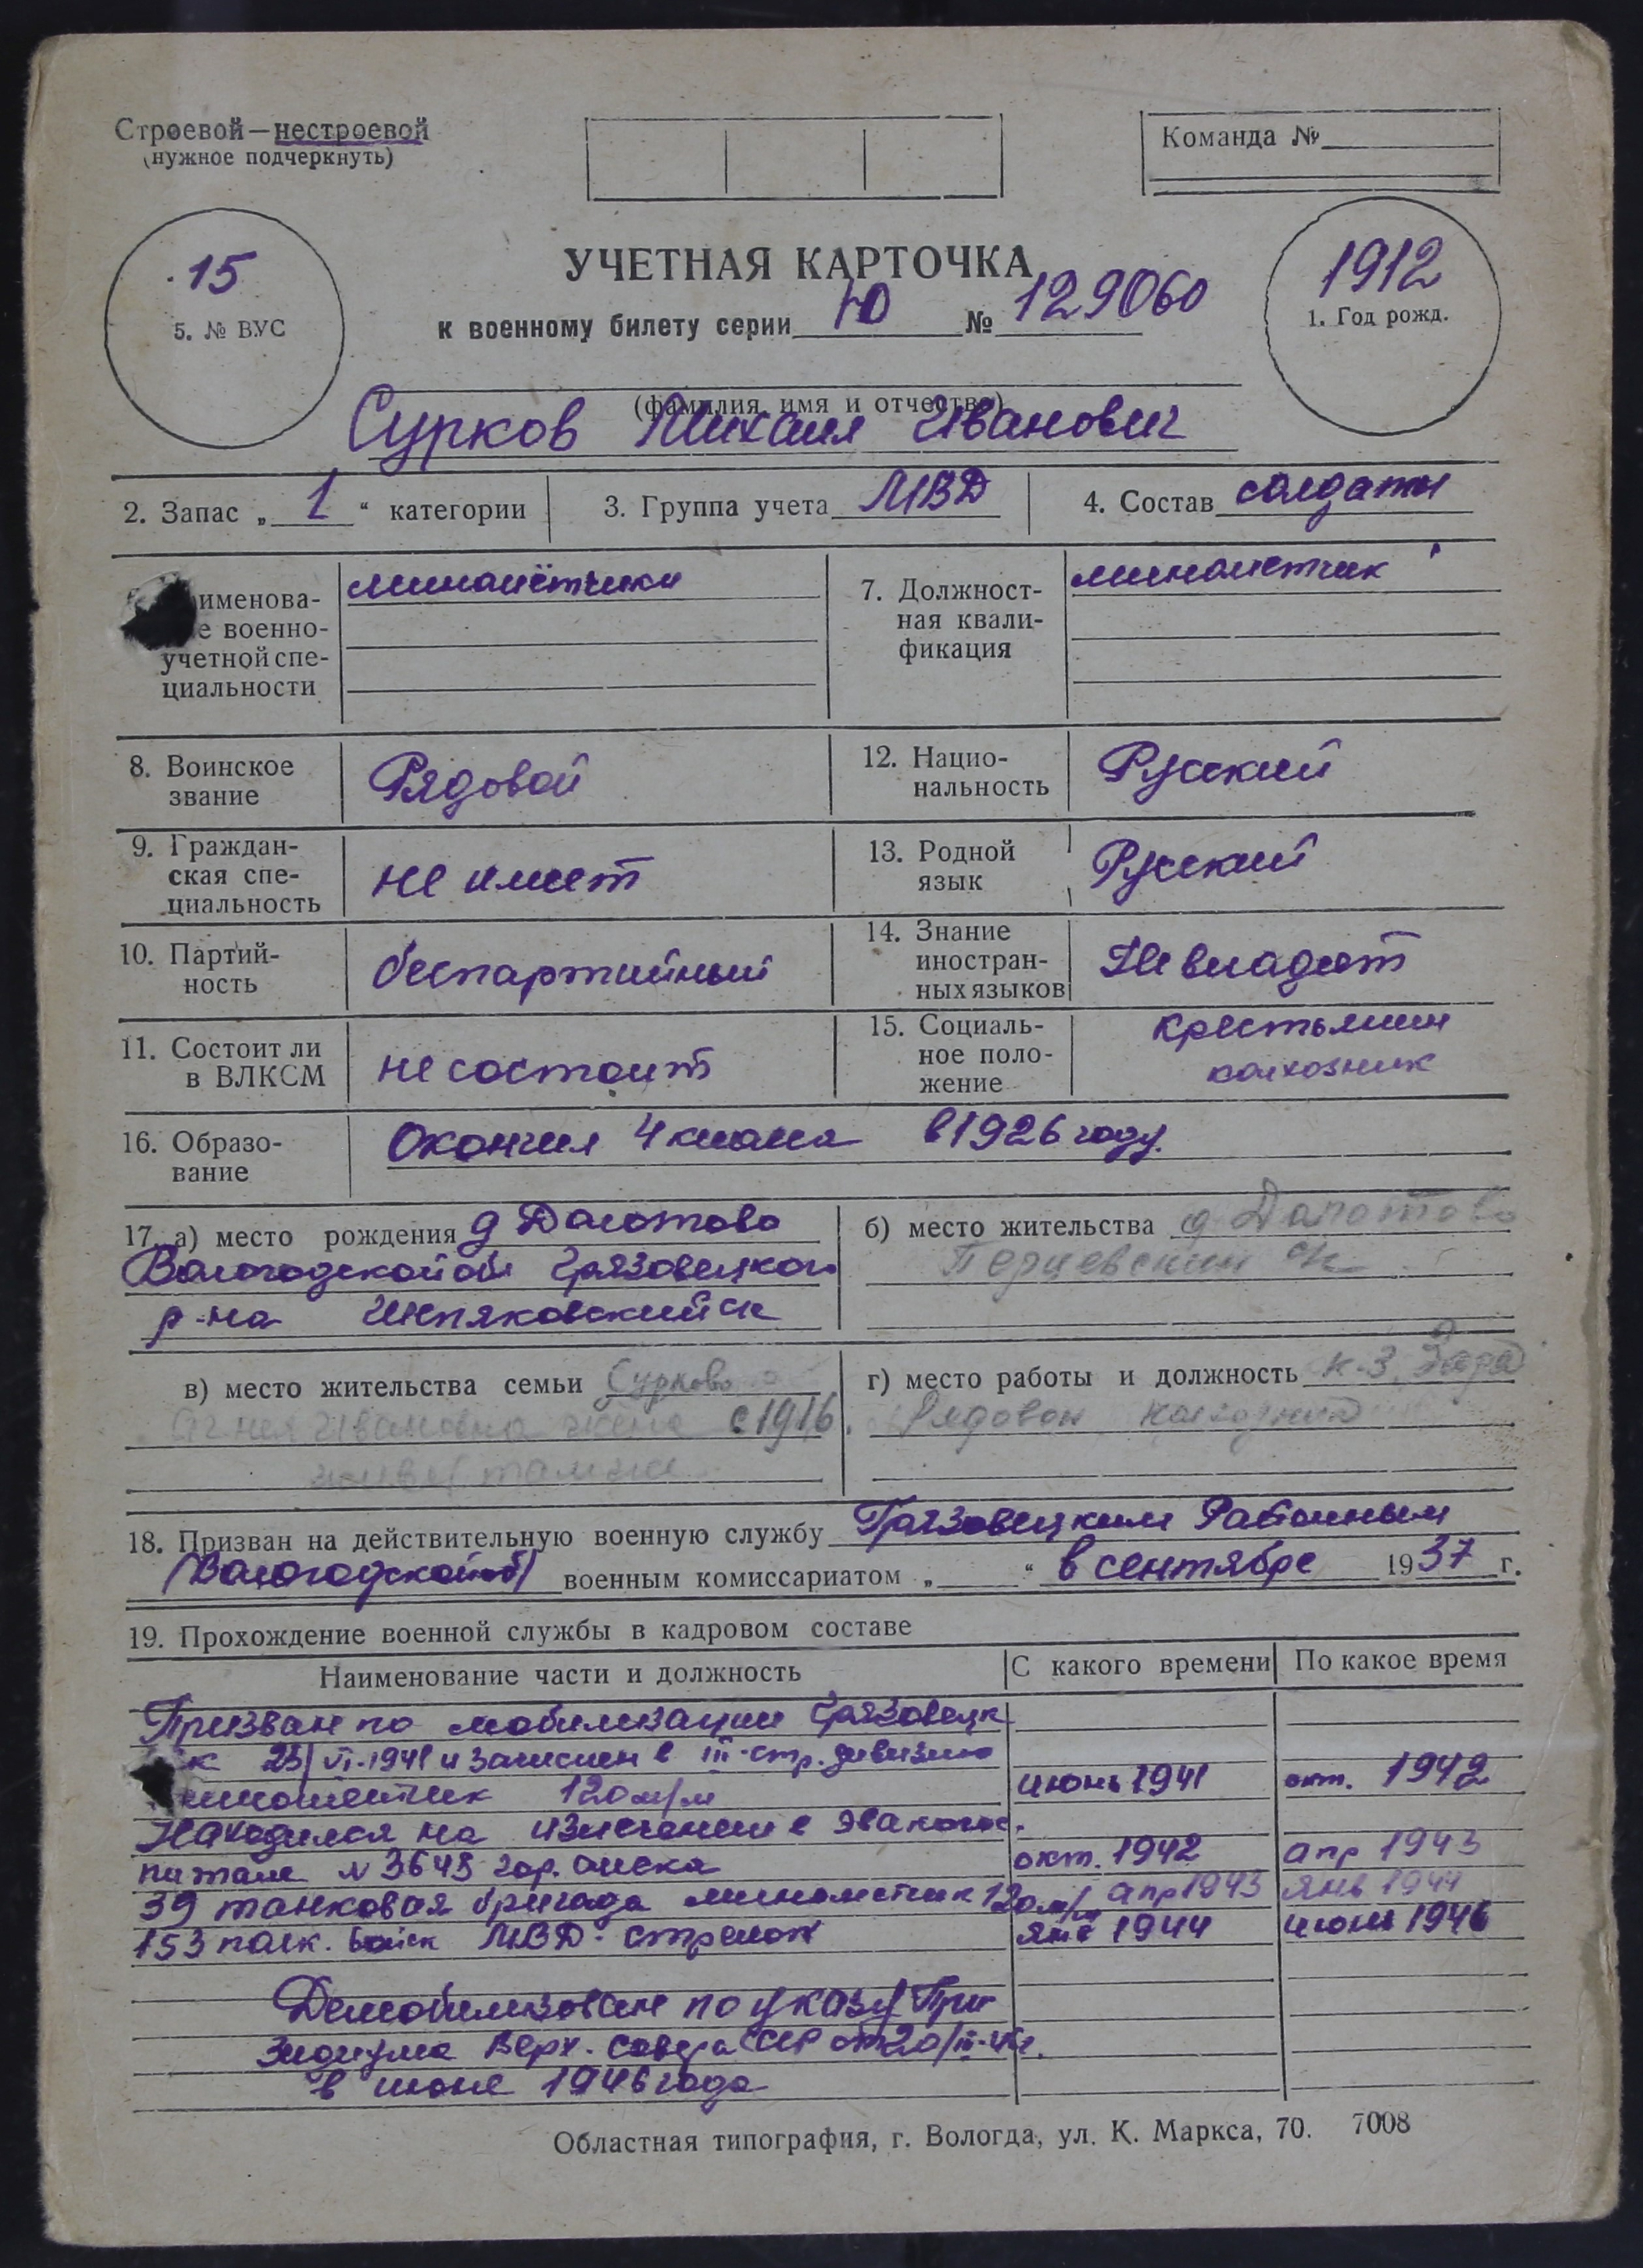 Строевой—нестроевой
(нужное подчеркнуть)
Команда №
15
5. № ВУС
УЧЕТНАЯ КАРТОЧКА
к военному билету серии Ю № 129060
1912
1. Год рожд.
(фамилия, имя и отчество)
Сурков Михаил Иванович
2. Запас „ 1 “ категории
3. Группа учета МВД
4. Состав солдаты
именова-
е военно-
учетной спе-
циальности
миномётчики
7. Должност-
ная квали-
фикация
минометчик
8. Воинское
звание
Рядовой
12. Нацио-
нальность
Русский
9. Граждан-
ская спе-
циальность
не имеет
13. Родной
язык
Русский
10. Партий-
ность
беспартийный
14. Знание
иностран-
ных языков
Не владеет
11. Состоит ли
в ВЛКСМ
не состоит
15. Социаль-
ное поло-
жение
крестьянин
колхозник
16. Образо-
вание
Окончил 4 класса в 1926 году.
17. а) место рождения д Долотово
Вологодской об Грязовецкого
р-на ск
б) место жительства д
Перцевский ск
в) место жительства семьи Суркова
Агнея Ивановна жена с 1916.
живет там же
г) место работы и должность к-з Заря
Рядовой колхозник
18. Призван на действительную военную службу Грязовецким Районным
(Вологодской об) военным комиссариатом „ “ в сентябре 1937 г.
19. Прохождение военной службы в кадровом составе
Наименование части и должность
С какого времени
По какое время
Призван по мобилизации Грязовецк
к 23/VI-1941 и зачислен в III-стр. дивизию
минометчик 120 м/м июнь 1941 окт. 1942
Находился на излечении в эвакогос.
питале N 3648 гор. окт. 1942 апр 1943
39 танковая бригада минометчик 120 м/м апр 1943 янв 1944
153 полк. войск МВД - стрелок янв 1944 июнь 1946
Демобилизован по указу При
зидиума Верх. совета СССР от 20/III-46г.
в июне 1946 года
Областная типография, г. Вологда, ул. К. Маркса, 70. 7008